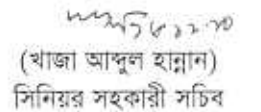 (খাজা আব্দুল হান্নান)
সিনিয়র সহকারী সচিব